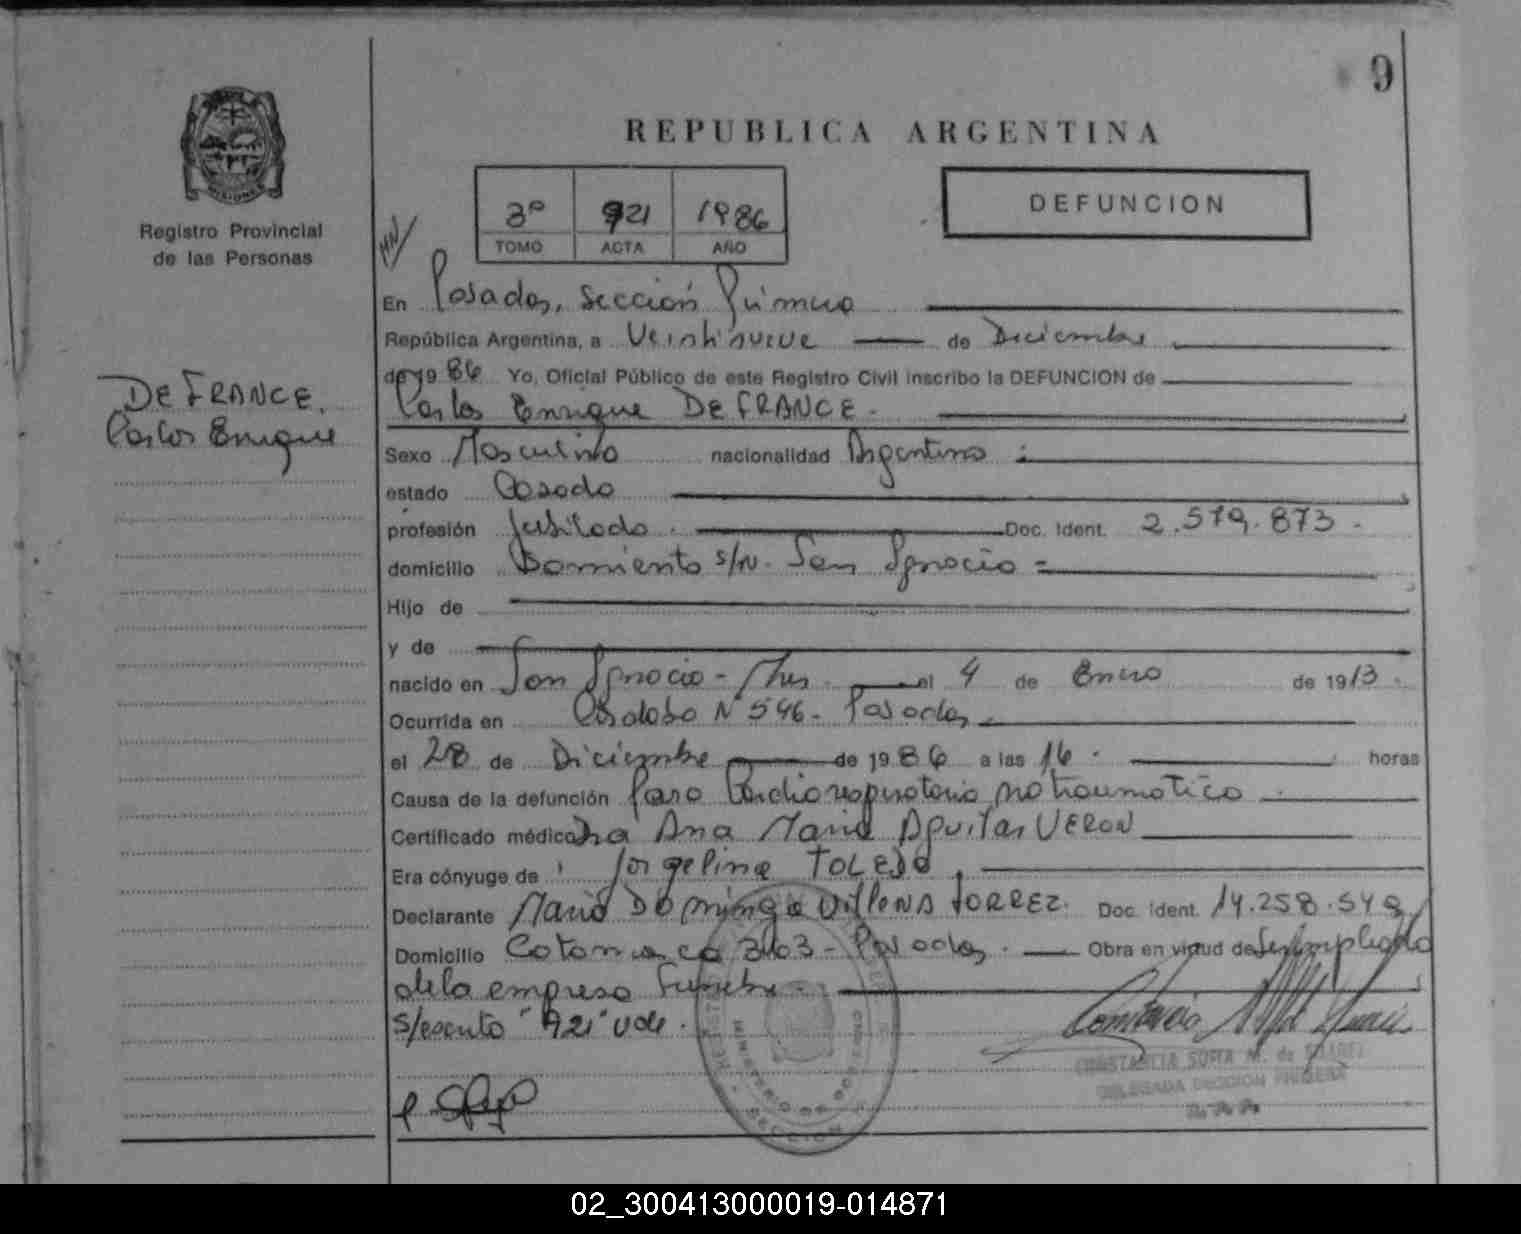 9
REPUBLICA ARGENTINA
3º 921 1986
TOMO ACTA AÑO
DEFUNCION
Registro Provincial
de las Personas
DE FRANCE.
Carlos Enrique
En Posadas, Sección Primera
República Argentina, a Veintinueve de Diciembre
de 1986 Yo, Oficial Público de este Registro Civil inscribo la DEFUNCION de
Carlos Enrique DE FRANCE.
Sexo Masculino nacionalidad Argentino
estado Casado
profesión Jubilado. Doc. Ident. 2.579.873.
domicilio Sarmiento s/n. San Ignacio
Hijo de
y de
nacido en San Ignacio - Mnes. el 4 de Enero de 1913.
Ocurrida en Córdoba Nº 546 - Posadas.
el 28 de Diciembre de 1986 a las 16. horas
Causa de la defunción Paro Cardiorespiratorio no traumatico
Certificado médico Dra Ana Maria Aguilar VERON
Era cónyuge de Jorgelina TOLEDO
Declarante Mario Domingo Villena TORREZ. Doc. Ident. 14.258.549
Domicilio Catamarca - Posadas. Obra en virtud de Ser Empleado
de la empresa Funebre.
s/escrito "921" vale.
CONSTANCIA SOFIA M. de SUAREZ
DELEGADA SECCION PRIMERA
MINISTERIO DE GOBIERNO
SECCION
02_300413000019-014871